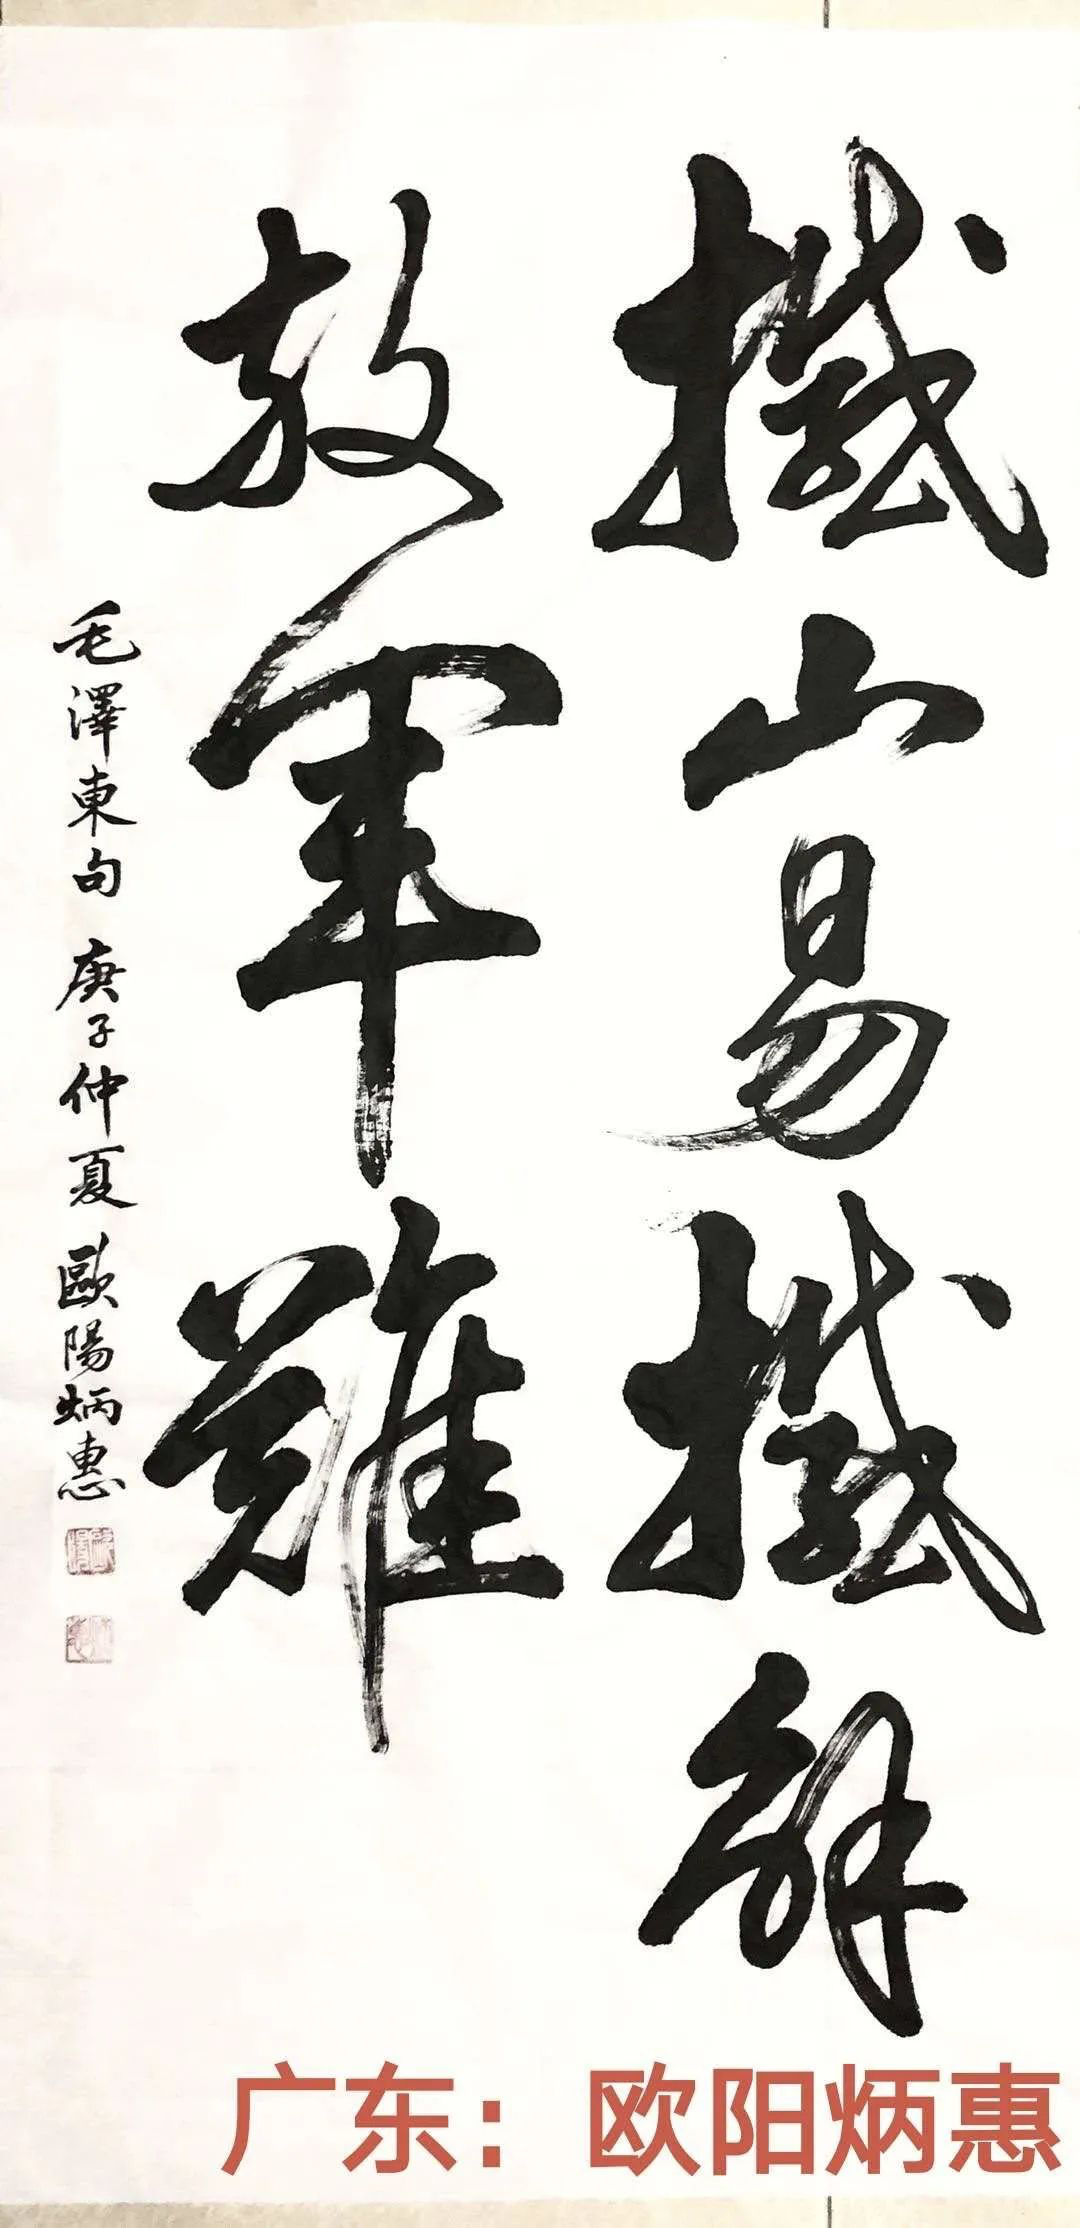 撼山易撼解
放軍難
毛澤東句 庚子仲夏 歐陽炳惠
广东：欧阳炳惠